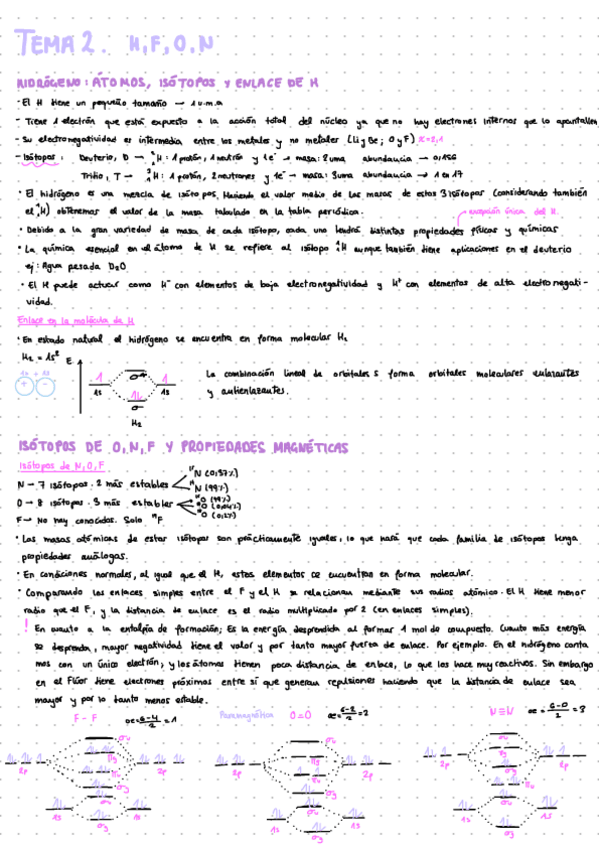 TEMA 2. H, F, O, N
HIDRÓGENO: ÁTOMOS, ISÓTOPOS Y ENLACE DE H
· El H tiene un pequeño tamaño → 1 u.m.a
- Tiene 1 electrón que está expuesto a la acción total del núcleo ya que no hay electrones internos que lo apantallen
- Su electronegatividad es intermedia entre los metales y no metales (Li y Be; O y F) x=2,1
- Isótopos: Deuterio, D → ²₁H: 1 protón, 1 neutrón y 1e⁻ → masa: 2uma abundancia → 0,156
Tritio, T → ³₁H: 1 protón, 2 neutrones y 1e⁻ → masa: 3uma abundancia → 1 en 17
· El hidrógeno es una mezcla de isótopos. Haciendo el valor medio de las masas de estos 3 isótopos (considerando también
el ¹₁H) obtenemos el valor de la masa tabulado en la tabla periódica.
excepción única del H.
· Debido a la gran variedad de masa de cada isótopo, cada uno tendrá distintas propiedades físicas y químicas
· La química esencial en el átomo de H se refiere al isótopo ¹H aunque también tiene aplicaciones en el deuterio
ej: Agua pesada D₂O
· El H puede actuar como H⁻ con elementos de baja electronegatividad y H⁺ con elementos de alta electronegati-
vidad.
Enlace en la molécula de H
· En estado natural el hidrógeno se encuentra en forma molecular H₂
H₂ = 1s² E
1s + 1s
La combinación lineal de orbitales s forma orbitales moleculares enlazantes
y antienlazantes.
σ*
1s 1s
σ
H₂
ISÓTOPOS DE O, N, F Y PROPIEDADES MAGNÉTICAS
Isótopos de N, O, F
N → 7 isótopos. 2 más estables N (0,37%)
N (99%)
O → 8 isótopos. 3 más estables O (99%)
O (0,04%)
O (0,2%)
F → No hay conocidos. Solo F
· Las masas atómicas de estos isótopos son prácticamente iguales, lo que hará que cada familia de isótopos tenga
propiedades análogas.
· En condiciones normales, al igual que el H, estos elementos se encuentran en forma molecular.
· Comparando los enlaces simples entre el F y el H se relacionan mediante sus radios atómico. El H tiene menor
radio que el F, y la distancia de enlace es el radio multiplicado por 2 (en enlaces simples).
! En cuanto a la entalpía de formación; Es la energía desprendida al formar 1 mol de compuesto. Cuanto más energía
se desprenda, mayor negatividad tiene el valor y por tanto mayor fuerza de enlace. Por ejemplo. En el hidrógeno conta
mos con un único electrón, y los átomos tienen poca distancia de enlace, lo que los hace muy reactivos. Sin embargo
en el Flúor tiene electrones próximos entre sí que generan repulsiones haciendo que la distancia de enlace sea
mayor y por lo tanto menos estable.
F - F oe = 6-4/2 = 1 Paramagnético O = O oe = 6-2/2 = 2 N ≡ N oe = 6-0/2 = 3
2p 2p 2p 2p 2p 2p
1s 1s 1s 1s 1s 1s